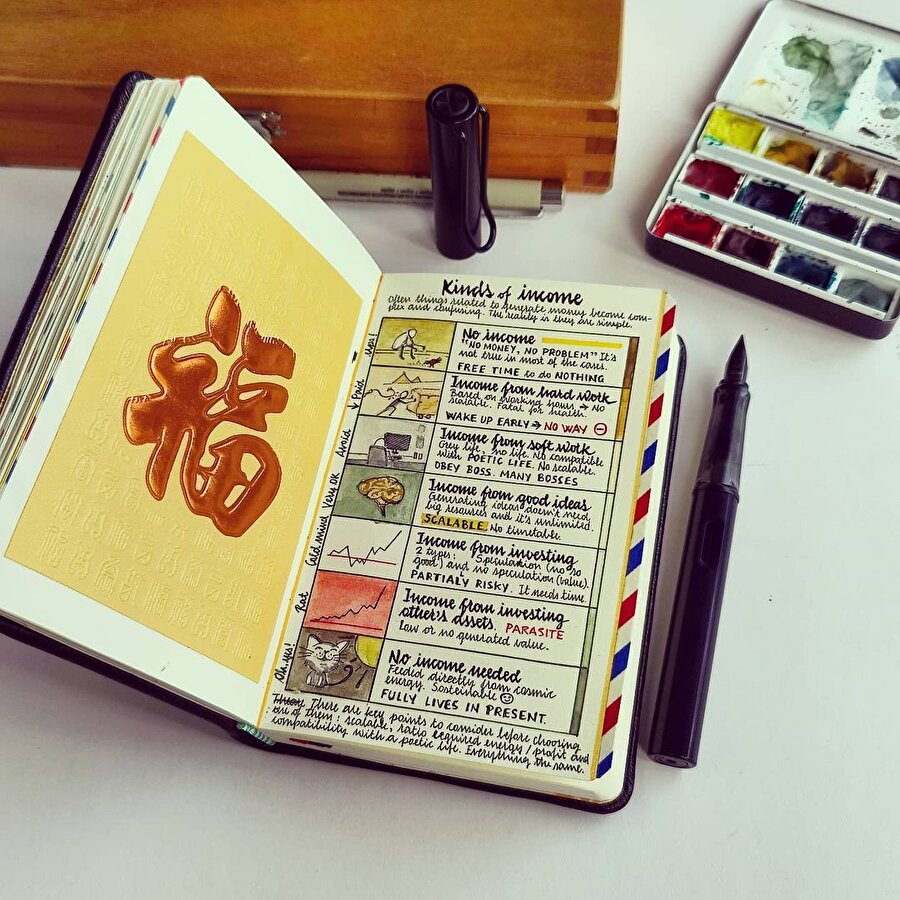 福
Kinds of income
Often things related to generate money become com-
plex and confusing. The reality is they are simple.
Ups!
No income
"NO MONEY, NO PROBLEM" It's
not true in most of the cases.
FREE TIME to do NOTHING
↓ Paid
Income from hard work
Based on working hours → No
scalable. Fatal for health.
WAKE UP EARLY → NO WAY ⊖
Avoid
Income from soft work
Grey life, no life. No compatible
with POETIC LIFE. No scalable.
OBEY BOSS. MANY BOSSES
Very ok
Income from good ideas
Generating ideas doesn't need
big resources and it's unlimited.
SCALABLE. No timetable.
Cold mind
Income from investing
2 types: Speculation (no so
good) and no speculation (value).
PARTIALY RISKY. It needs time.
Rat
Income from investing
other's assets. PARASITE
Low or no generated value.
Oh, yes!
No income needed
Feeded directly from cosmic
energy. Sosteinable ☺
FULLY LIVES IN PRESENT.
There are key points to consider before choosing
one of them: scalable, ratio required energy / profit and
compatibility with a poetic life. Everything the same.